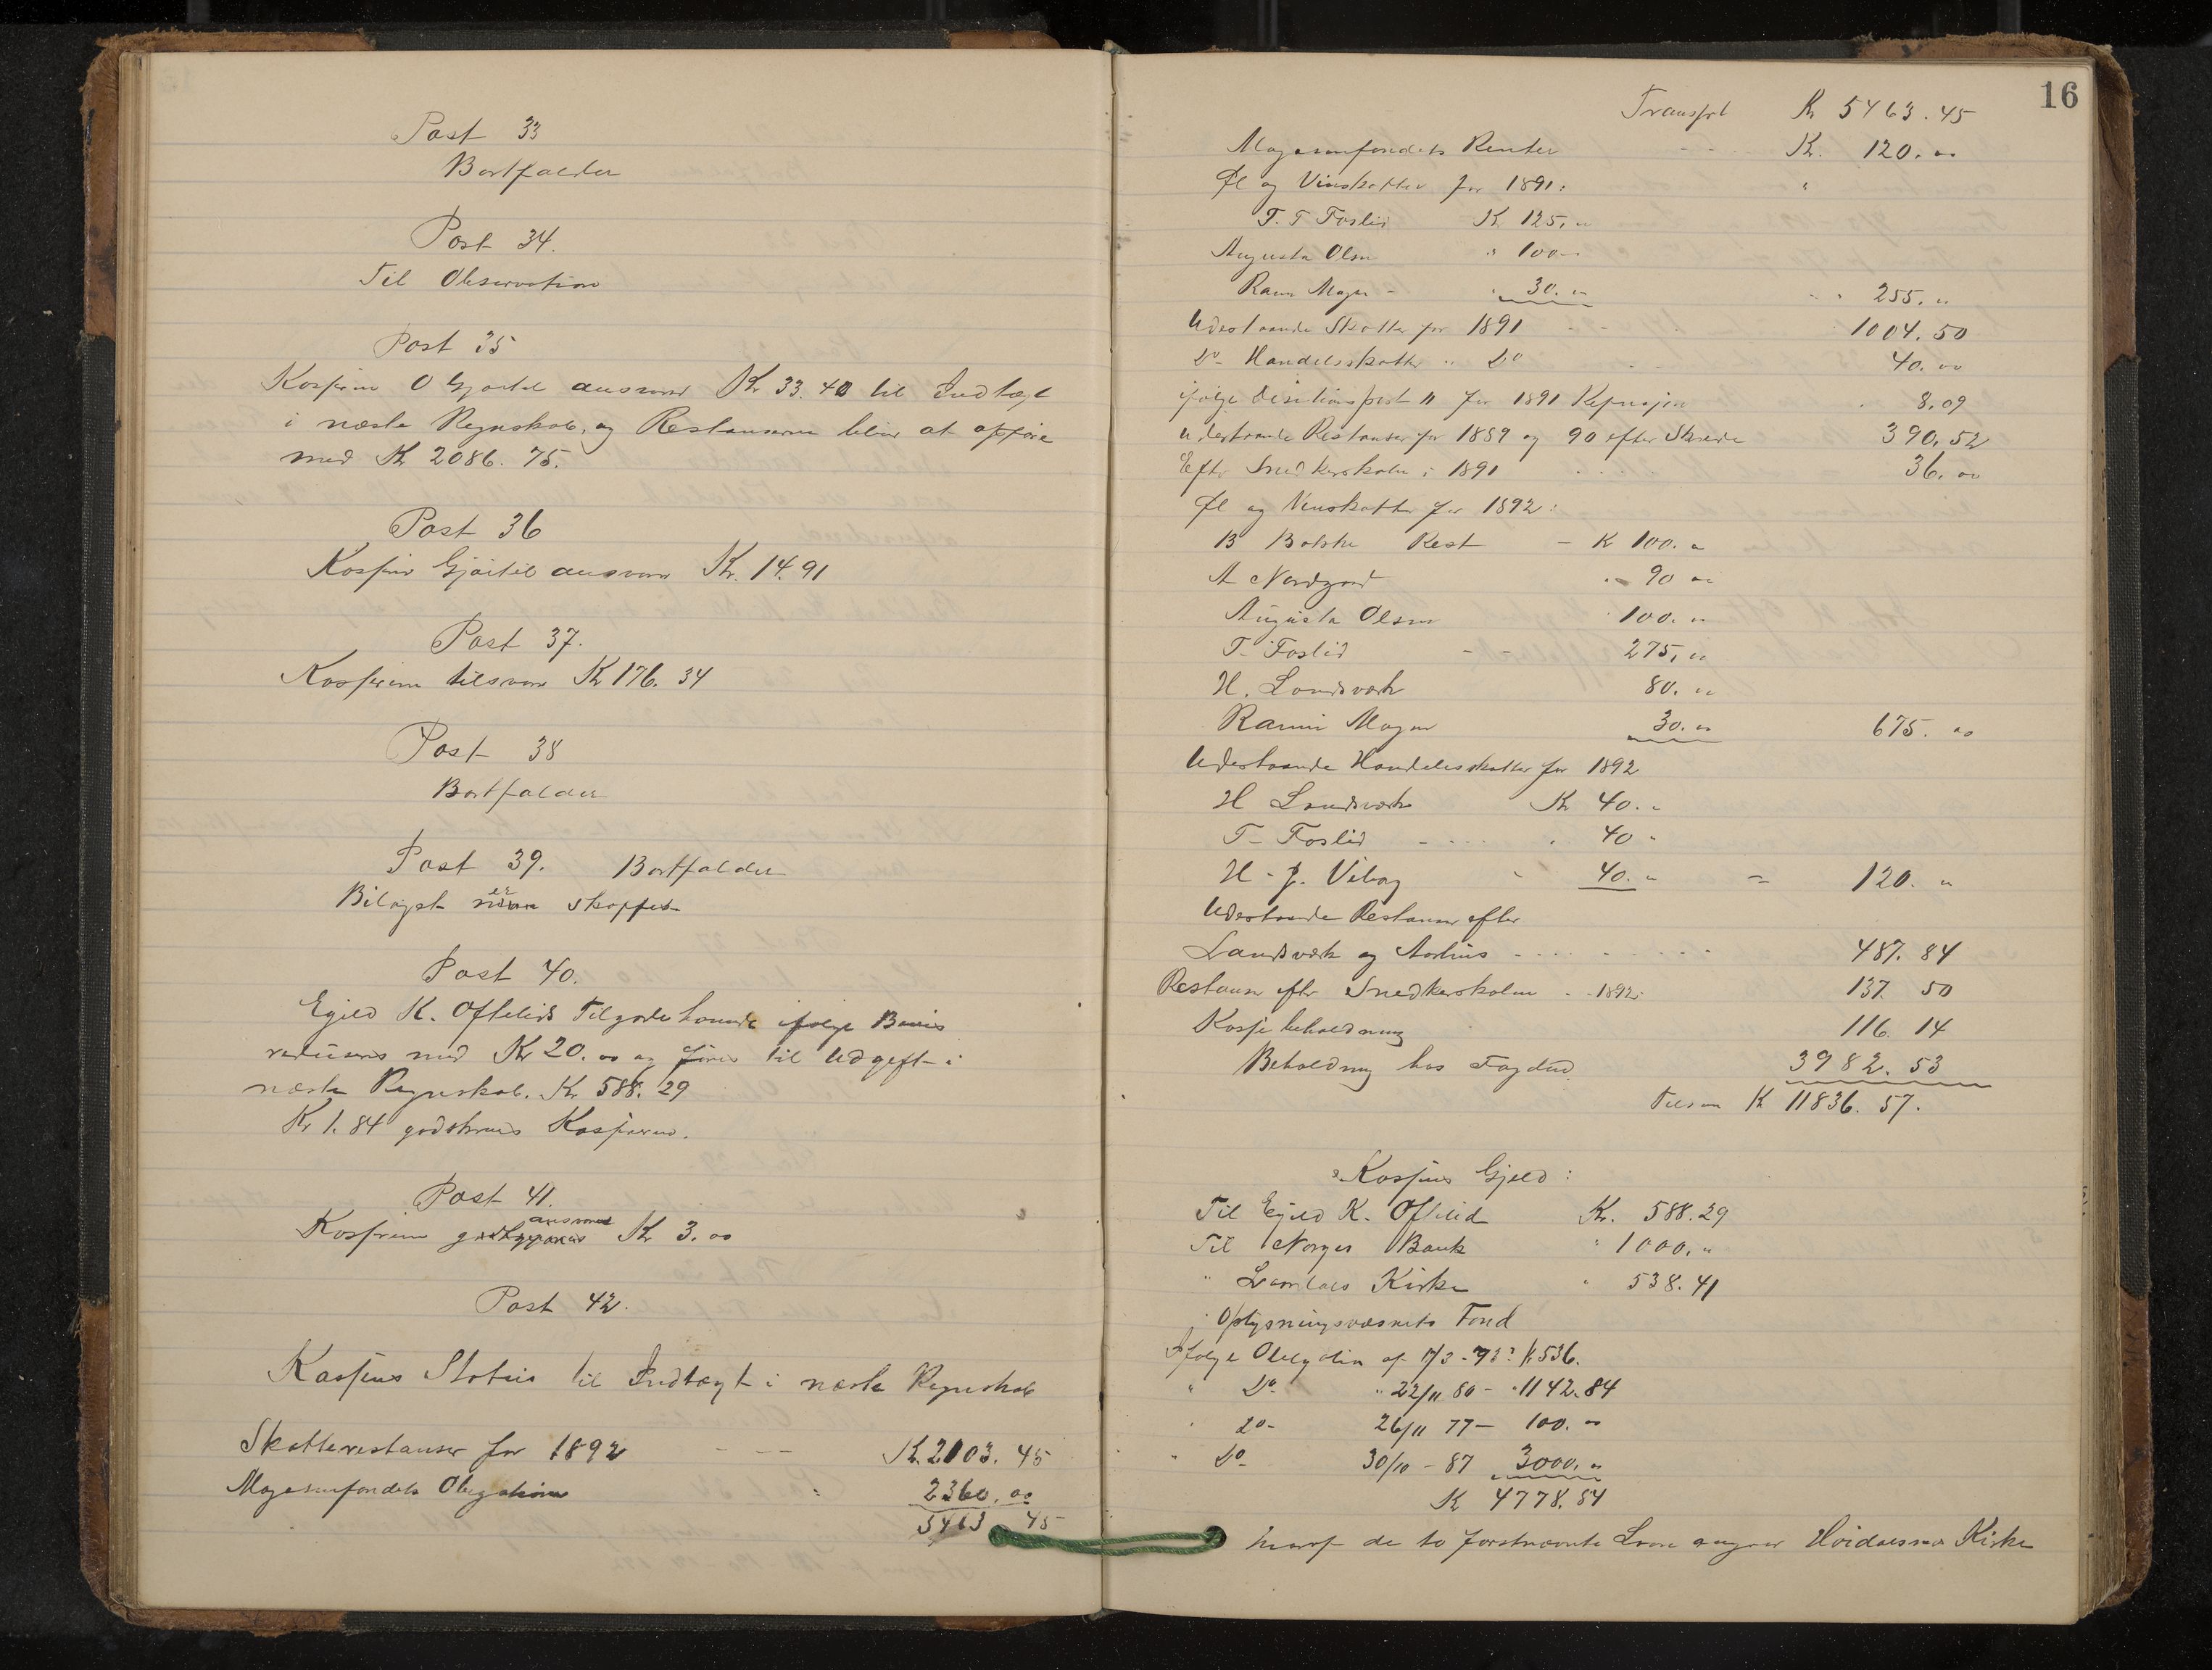 Post 33
Bortfalder
Post 34.
Til Observation
Post 35
Kassereren O Gjøitil ansvarer Kr 33.40 til Indtægt
i næste Regnskab, og Restanserne blir at opføre
med Kr 2086.75.
Post 36
Kasserer Gjøitil ansvarer Kr. 14.91
Post 37.
Kassereren tilsvarer Kr 176.34
Post 38
Bortfalder
Post 39. Bortfalder
Bilaget er skaffet
Post 40.
Egild K. Oftelids Tilgodehavende ifølge Bevis
reduseres med Kr 20.00 og føres til Udgift i
næste Regnskab. Kr 588.29
Kr 1.84 godskrives Kassereren.
Post 41.
ansvarer
Kassereren godtgjøres Kr 3.00
Post 42.
Kassens Status til Indtægt i næste Regnskab
Skatterestanser for 1892 - - - Kr. 2103.45
Magasinfondets Obligationer " 2360.00
5463 45
16
Transport Kr 5463.45
Magasinfondets Renter - - Kr. 120.00
Øl og Vinskatter for 1891: "
T. T Foslid Kr 125.00
Augusta Olsen " 100 -
Rami Magen - " 30.00 255. "
Udestaaende Skatter for 1891 - - 1004.50
Do - Handelsskatter " Do - - 40.00
ifølge Desisionspost 11 for 1891 8.09
Udestaaende Restanser for 1889 og 90 efter 390.52
Efter Snedkerskolen i 1891 36.00
Øl og Vinskatter for 1892:
B Bakke Rest - Kr 100. "
A Nordgard " 90 "
Augusta Olsen 100. "
T. Foslid - - 275. "
H. Landsverk 80. "
Rami Magen 30. " 675. 00
Udestaaende Handelsskatter for 1892
H Landsverk Kr 40. "
T - Foslid - - - - " 40 "
H. J. Viborg " 40. " = 120. "
Udestaaende Restanser efter
Landsverk og Aarhus - - - - 487.84
Restanser efter Snedkerskolen - 1892: 137.50
Kassebeholdning 116.14
Beholdning hos Fogden 3982.53
Tilsam Kr 11836.57.
Kassens Gjeld:
Til Egild K. Oftelid Kr. 588.29
Til Norges Bank " 1000. "
" Laardals Kirke " 538.41
" Oplysningsvæsnets Fond
Ifølge Obligation af 17/3 - 93: Kr 536.
" Do " 22/11 80 - " 1142.84
" Do - 26/11 77 - 100.00
" Do - 30/10 - 87 3000. "
Kr 4778.84
hvoraf de to førstnævnte Laan angaar Høidalsmo Kirke